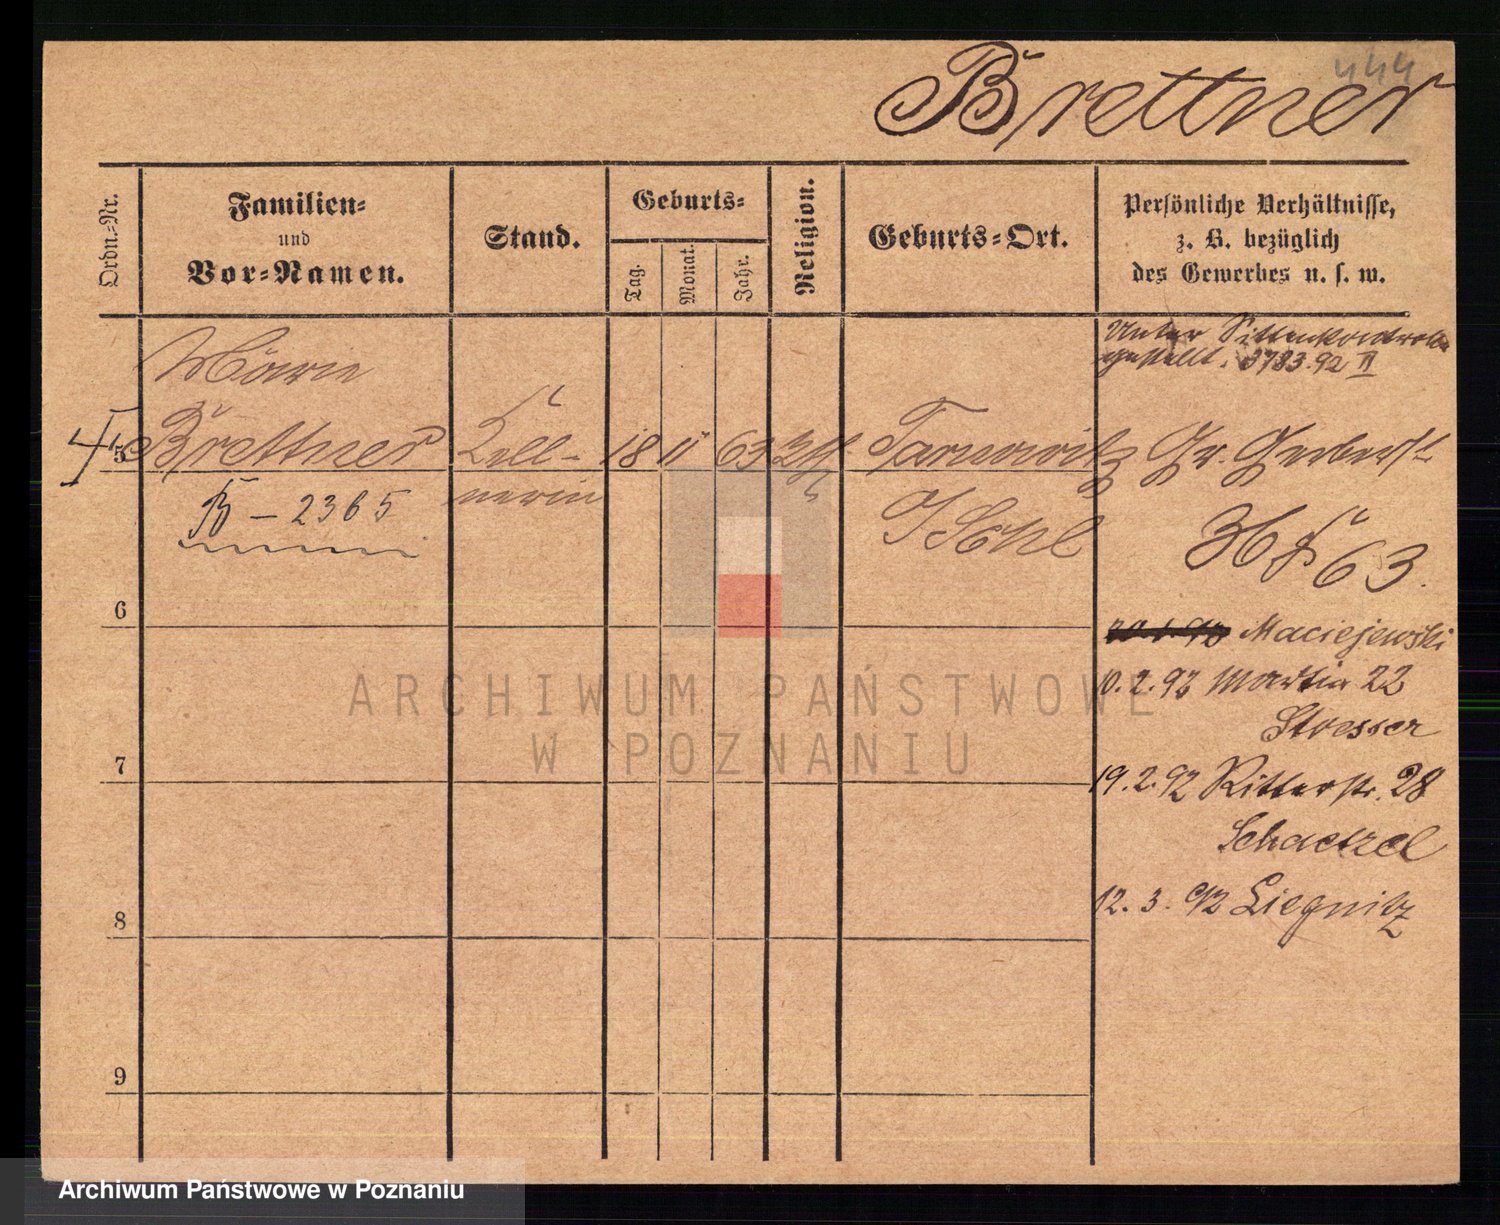 444
Brettner
Ordn.-Nr.
Familien-
und
Vor-Namen.
Stand.
Geburts-
Tag.
Monat.
Jahr.
Religion.
Geburts-Ort.
Persönliche Verhältnisse,
z. B. bezüglich
des Gewerbes u. s. w.
Unter Sittenkontrolle
gestellt. 3783.92 II
Marie
5 Brettner Kell- 18 11 63 Tarnowitz Gr. Gerberst
nerin
B – 2365
O/Schl
36 63.
6
Maciejewski
10.2.92 Martin 22
Stresser
7
19.2.92 Ritterstr. 28
Schaetzel
8
12. 3. 92 Liegnitz
9
ARCHIWUM PAŃSTWOWE
W POZNANIU
Archiwum Państwowe w Poznaniu